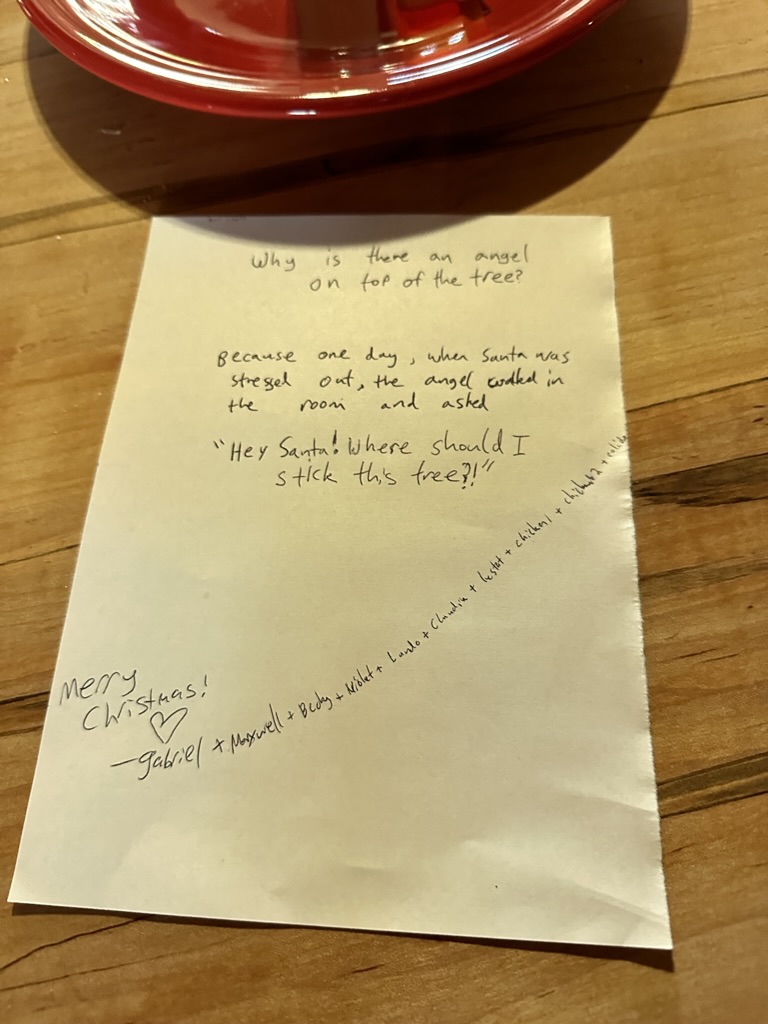 Why is there an angel
on top of the tree?
Because one day, when Santa was
stressed out, the angel walked in
the room and asked
"Hey Santa! Where should I
stick this tree?!"
Merry
Christmas!
—gabriel + Maxwell + Becky + Violet + Lando + Claudia + Lestat + chicken1 + chicken2 +